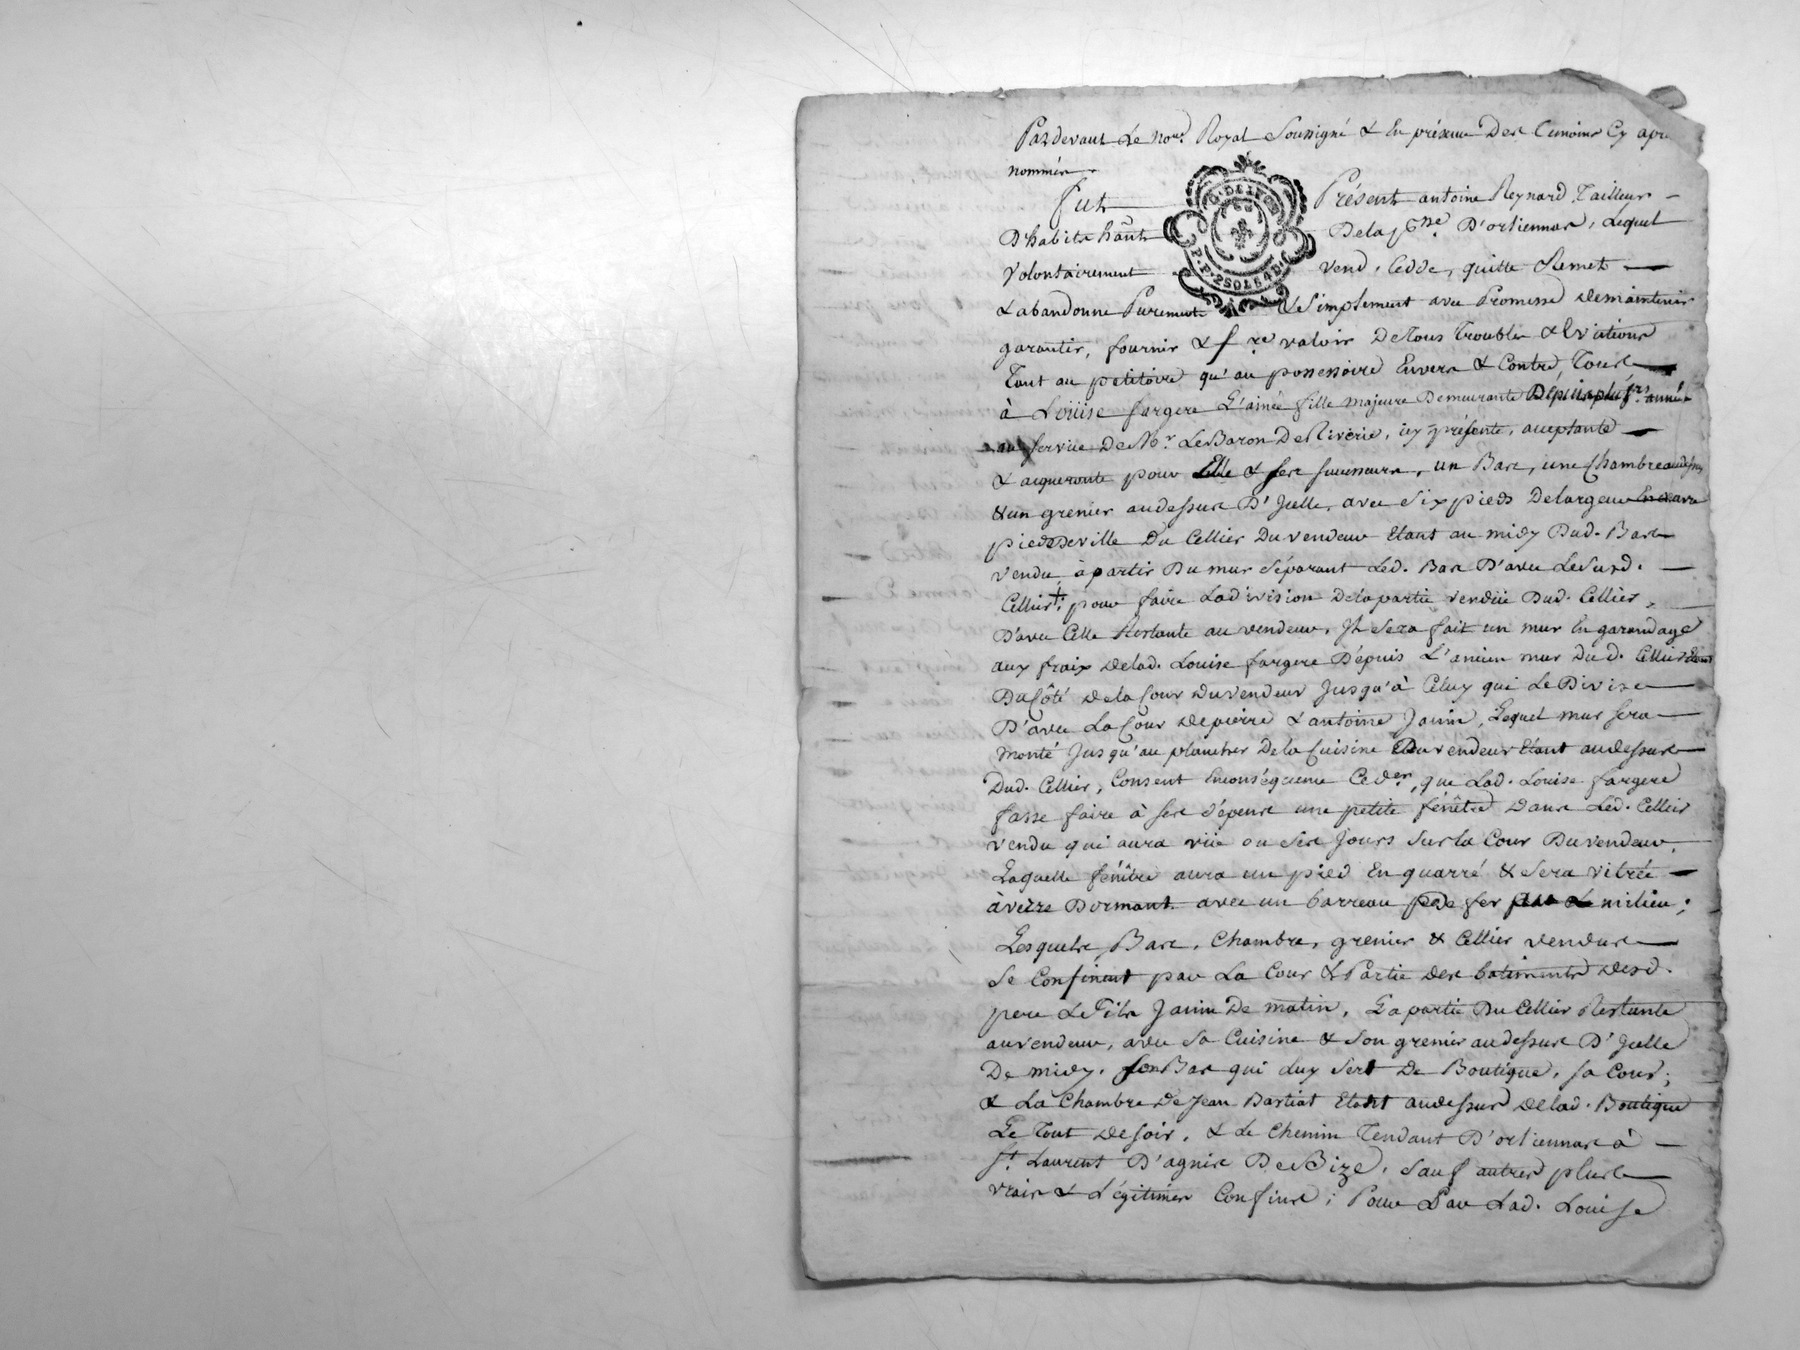 Pardevant Le no.re Royal Soussigné & En présence Des temoins Cy apre
nommés.
fut Présent antoine Reynard, Tailleur
D'habits habitant De la p.sse D'orliennas, Lequel
Volontairement vend, Cedde, quitte Remet
G. DE LYON
P.P. 2 SOLS 4 D.
& abandonne Purement & Simplement avec Promesse de maintenir
garantir, fournir & f.re valoir De tous Troubles & Evictions
Tant au petitoire qu'au possessoire Envers & Contre Tous
à Loüise fargere L'ainée fille majeure Demeurante Depuis plus.rs année
au Service De M.r Le Baron De Riverie, icy présente, acceptante
& acqueronte pour Elle & ses successeurs, un Bas, une Chambre au dessus
& un grenier au dessus D'Jcelle, avec Six pieds De largeur
pied De ville Du Cellier Du vendeur Etant au midy Dud. Bas
vendu, à partir Du mur Séparant Led. Bas D'avec Le Susd.
Cellier; pour faire La division De la partie vendüe Dud. Cellier,
D'avec Celle Restante au vendeur, Jl Sera fait un mur En garandage
aux fraix de lad. Louise fargere Dépuis L'ancien mur Dud. Cellier
Du Côté de la Cour du vendeur Jusqu'à Celuy qui Le Divise
D'avec La Cour de pierre & antoine Janin, Lequel mur sera
monté Jusqu'au plancher De la Cuisine Du vendeur Etant au dessus
Dud. Cellier, Consent En conséquence Ce d.er, que Lad. Louise fargere
fasse faire à ses dépens une petite fénêtre dans Led. Cellier
vendu qui aura vüe ou ses Jours Sur la Cour Du vendeur,
Laquelle fénêtre aura un pied En quarré & Sera vitrée
à verre Dormant avec un barreau de fer par Le milieu;
Lesquels Bas, Chambre, grenier & Cellier vendus
Se Confinent par La Cour & Partie des batiments desd.
pere & fils Janin De matin, La partie Du Cellier Restante
au vendeur, avec Sa Cuisine & Son grenier au dessus D'Jcelle
De midy, Son Bas qui Luy Sert De Boutique, sa Cour;
& La Chambre De Jean Bastiat Etant au dessus de lad. Boutique
Le Tout de soir, & Le Chemin Tendant D'orliennas à
S.t Laurent D'agnis De Bize, Sauf autres plus
vrais & Légitimes Confins; Pour Par Lad. Louise